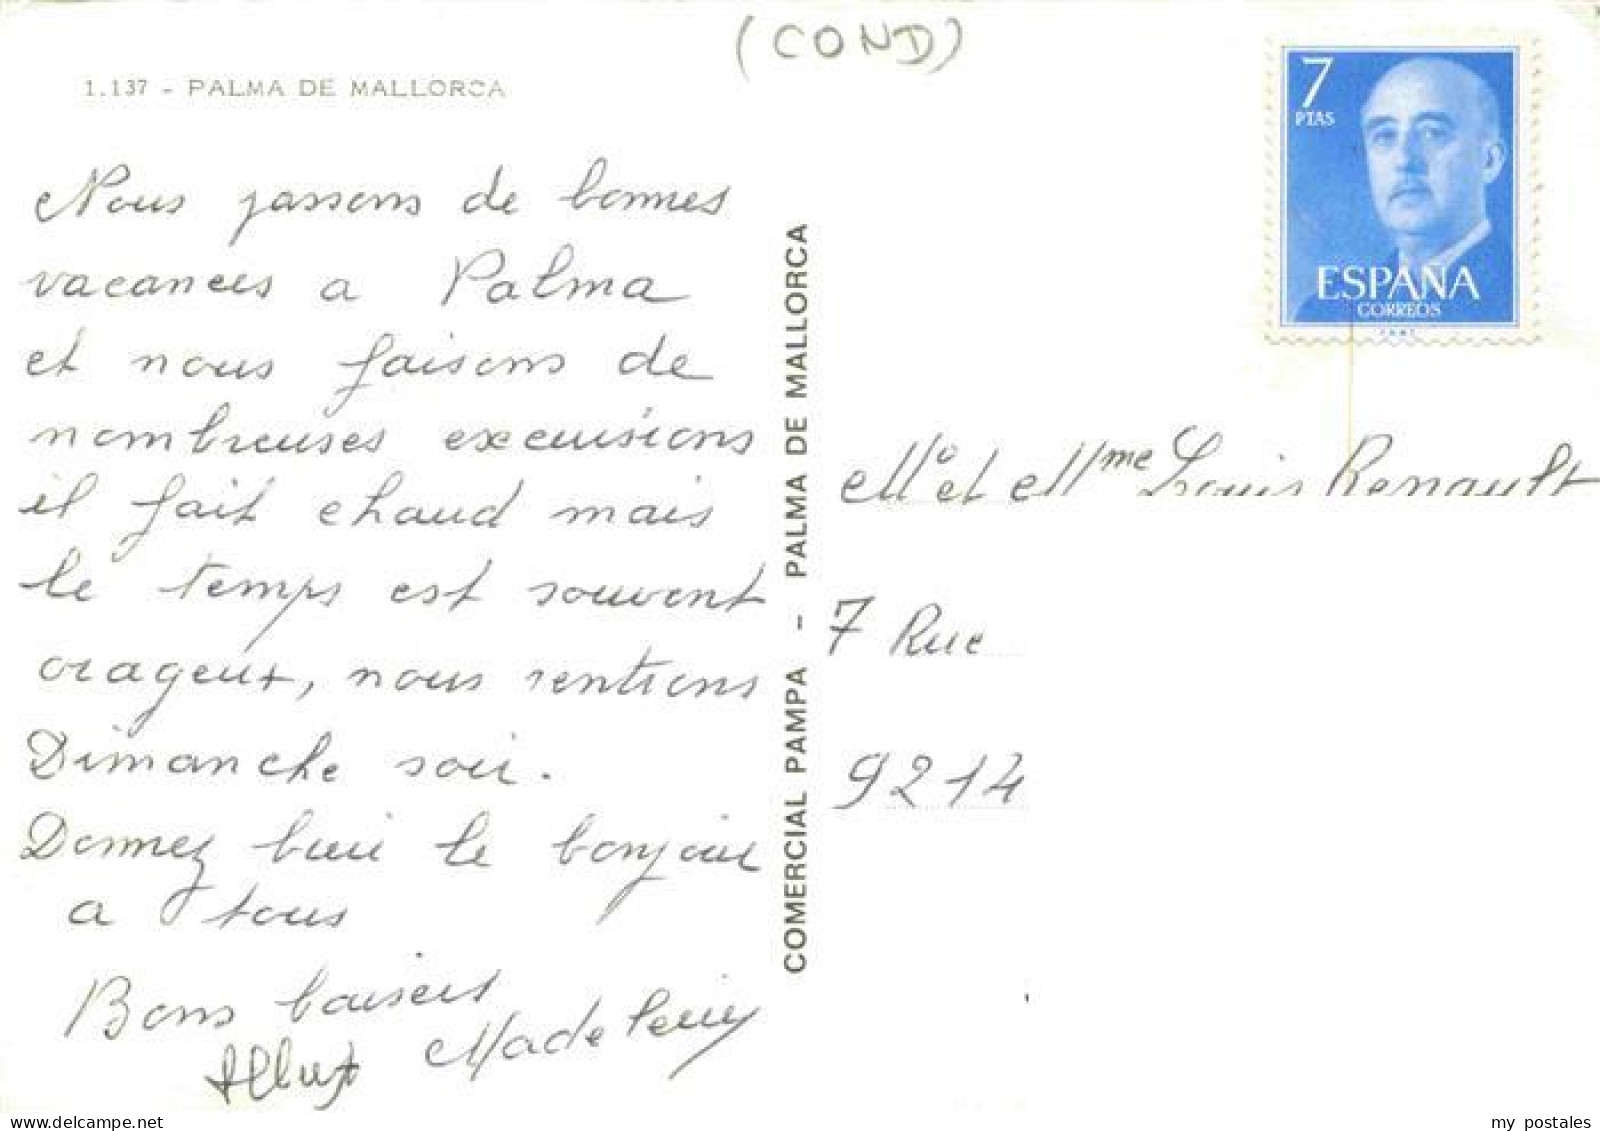 (COND)
1.137 - PALMA DE MALLORCA
7
PTAS
ESPAÑA
CORREOS
Nous passons de bonnes
vacances a Palma
et nous faisons de
nombreuses excursions
il fait chaud mais
le temps est souvent
orageux, nous rentrons
Dimanche soir.
Donnez bien le bonjour
a tous
Bons baisers
Albert Madeleine
COMERCIAL PAMPA - PALMA DE MALLORCA
Mr et Mme Louis Renault
7 Rue
9214
delcampe.net
my postales